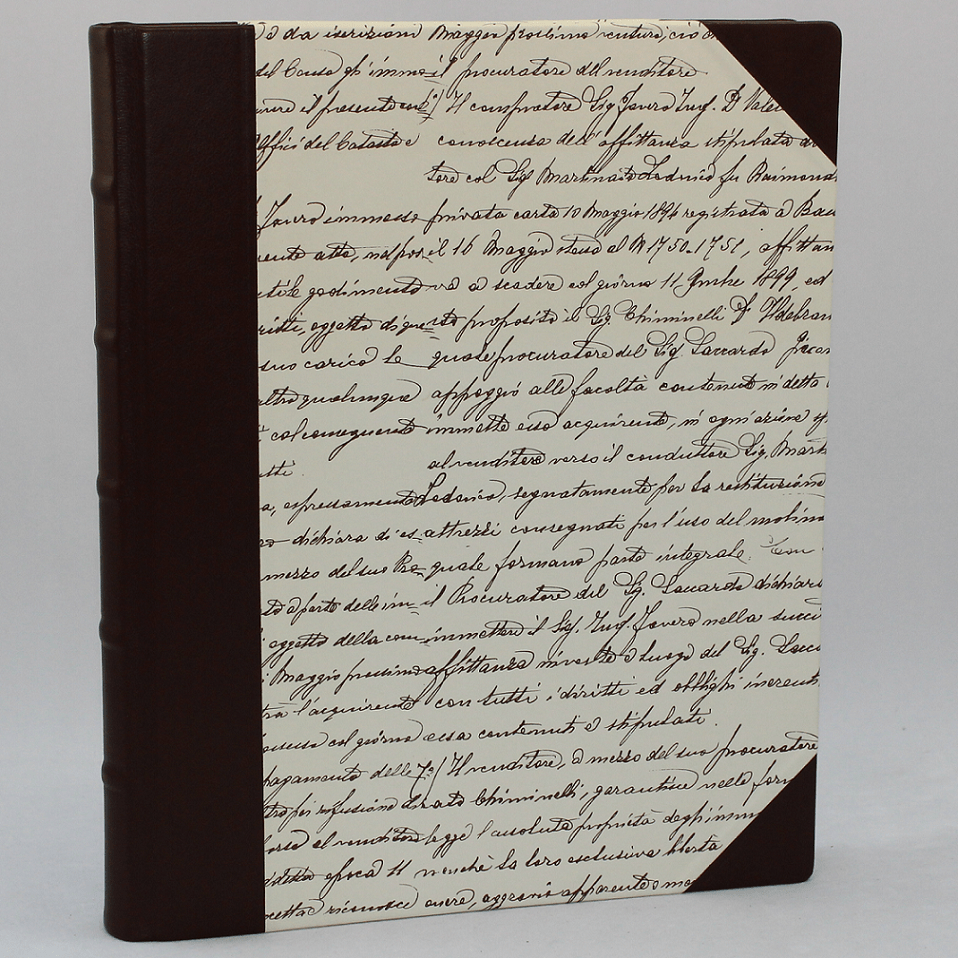 o da iscrizioni Maggio prossimo venturo, ciò
del Censo gli imme= il procuratore del venditore
il presente 6°/ Il compratore Sig Ing. Dr
Uffici del Catasto e conoscenza dell'affittanza stipulata
tore col Sig Martinato Lodovico fu Raimondo
immesso privata carta 10 Maggio 1894 registrata a
il 16 Maggio stesso al N 1750-1751, affittan
godimento va a scadere col giorno 11 9mbre 1899, ed
oggetto di que= sto proposito il Sig. Chiminelli Dr Ildebran
suo carico le quale procuratore del Sig. Saccardo
altro qualunque appoggio alle facoltà contenute in detta
col conseguente immette esso acquirente, in ogni azione
utti. al venditore verso il conduttore Sig. Mart
a, espressamente Lodovico, segnatamente per la restituzione
dichiara di es= attrezzi consegnati per l'uso del molino
mezzo del suo Pro= quale formano parte integrale. Con
a parte delle im= il Procuratore del Sig. Saccardo dichiara
oggetto della com= immettere il Sig. Ing. nella
Maggio prossimo affittanza investito a luogo del Sig. Sacc
tra l'acquirente con tutti i diritti ed obblighi inerenti
possesso col giorno essa contenuti e stipulati.
pagamento delle 7°/ Il venditore, a mezzo del suo procuratore
Chiminelli, garantisce nelle for
al venditore legge l'assoluta proprietà degli imm
epoca Il nonchè la loro esclusiva libertà
riconosce onere, aggravio apparente o